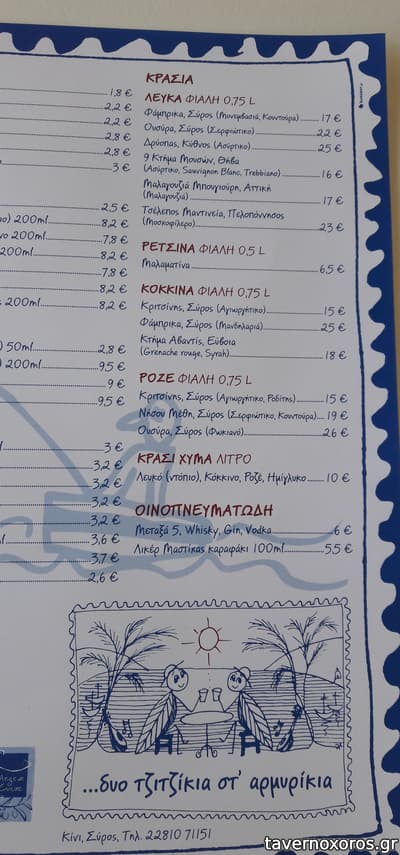 1,8 €
2,2 €
2,2 €
2,8 €
2,8 €
3 €
2,5 €
ο) 200ml 8,2 €
νο 200ml 7,8 €
200ml 8,2 €
7,8 €
8,2 €
ς 200ml 8,2 €
) 50ml 2,8 €
) 200ml 9,5 €
9 €
9,5 €
3 €
3,2 €
3,2 €
3,2 €
3,2 €
3,6 €
3,7 €
2,6 €
ΚΡΑΣΙΑ
ΛΕΥΚΑ ΦΙΑΛΗ 0,75 L
Φάμπρικα, Σύρος (Μονεμβασιά, Κουντούρα) 17 €
Ουσύρα, Σύρος (Σερφιώτικο) 22 €
Δρύοπας, Κύθνος (Ασύρτικο) 25 €
9 Κτήμα Μουσών, Θήβα
(Ασύρτικο, Sauvignon Blanc, Trebbiano) 16 €
Μαλαγουζιά Μπουγιούρη, Αττική
(Μαλαγουζιά) 17 €
Τσέλεπος Μαντινεία, Πελοπόννησος
(Μοσχοφίλερο) 23 €
ΡΕΤΣΙΝΑ ΦΙΑΛΗ 0,5 L
Μαλαματίνα 6,5 €
ΚΟΚΚΙΝΑ ΦΙΑΛΗ 0,75 L
Κριτσίνης, Σύρος (Αγιωργήτικο) 15 €
Φάμπρικα, Σύρος (Μανδηλαριά) 25 €
Κτήμα Αβαντίς, Εύβοια
(Grenache rouge, Syrah) 18 €
ΡΟΖΕ ΦΙΑΛΗ 0,75 L
Κριτσίνης, Σύρος (Αγιωργήτικο, Ροδίτης) 15 €
Νήσου Μέθη, Σύρος (Σερφιώτικο, Κουντούρα) 19 €
Ουσύρα, Σύρος (Φωκιανό) 26 €
ΚΡΑΣΙ ΧΥΜΑ ΛΙΤΡΟ
Λευκό (ντόπιο), Κόκκινο, Ροζέ, Ημίγλυκο 10 €
ΟΙΝΟΠΝΕΥΜΑΤΩΔΗ
Μεταξά 5, Whisky, Gin, Vodka 6 €
Λικέρ Μαστίχας καραφάκι 100ml 5,5 €
...δυο τζιτζίκια στ' αρμυρίκια
Κίνι, Σύρος, Τηλ. 22810 71151
tavernoxoros.gr